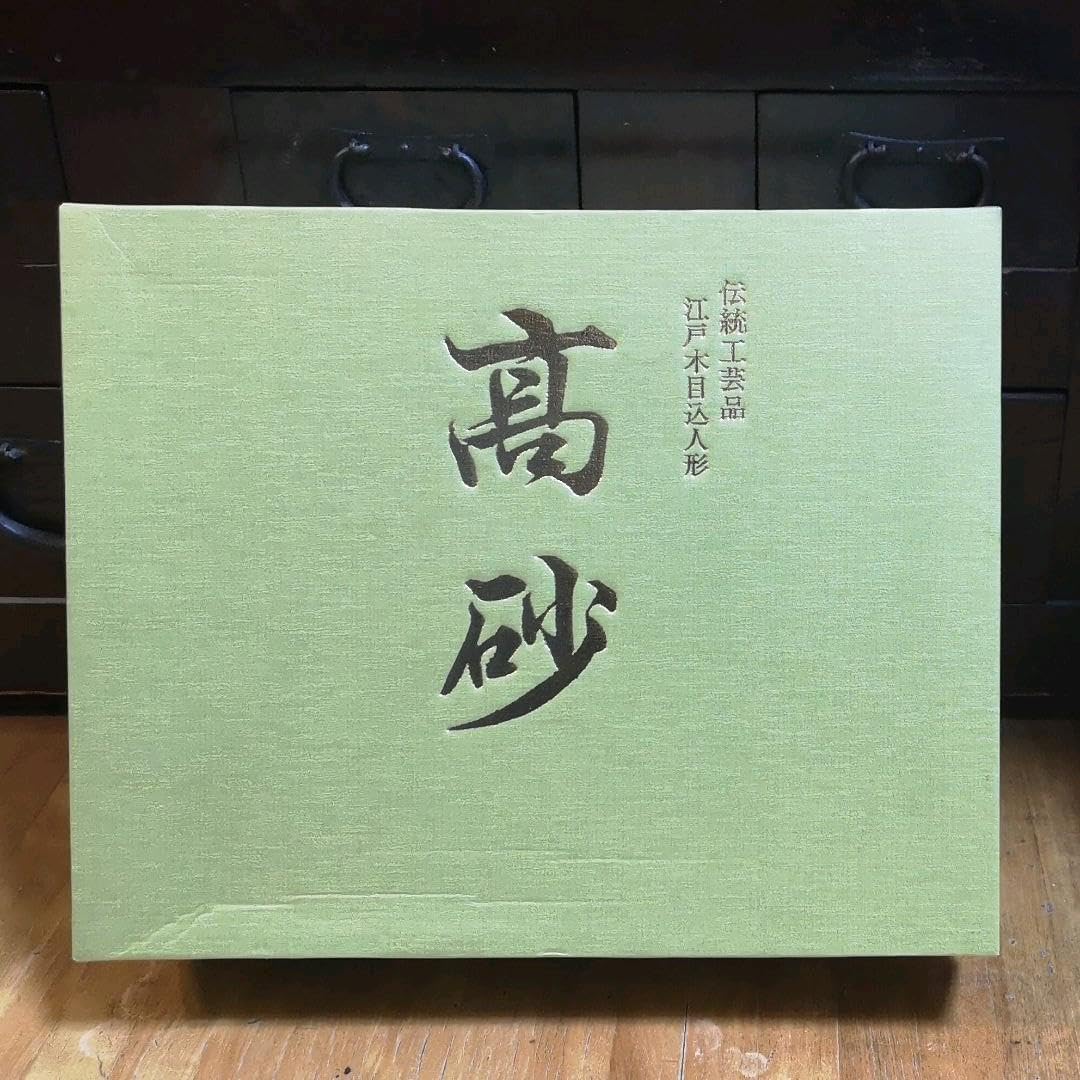 伝統工芸品
江戸木目込人形
高砂